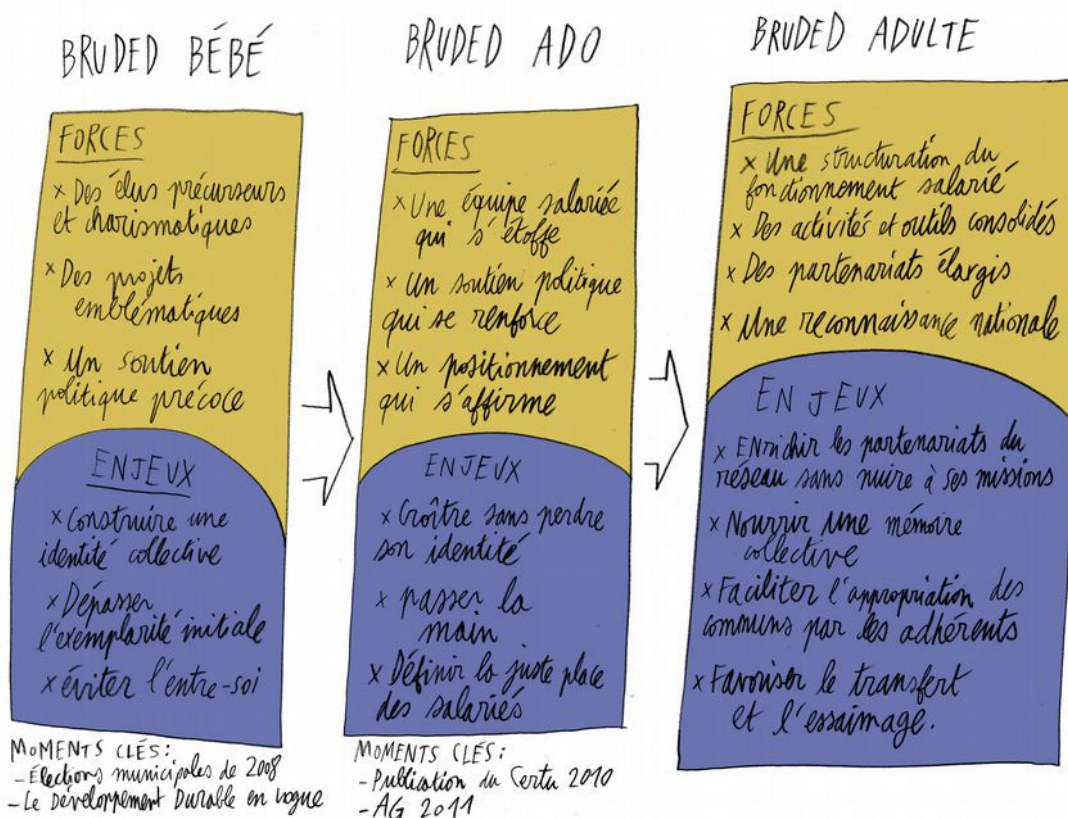 BRUDED BÉBÉ
FORCES
x Des élus précurseurs
et charismatiques
x Des projets
emblématiques
x Un soutien
politique précoce
ENJEUX
x Construire une
identité collective
x Dépasser
l'exemplarité initiale
x éviter l'entre-soi
MOMENTS CLÉS:
- Élections municipales de 2008
- Le Développement Durable en vogue
BRUDED ADO
FORCES
x Une équipe salariée
qui s'étoffe
x Un soutien politique
qui se renforce
x Un positionnement
qui s'affirme
ENJEUX
x Croître sans perdre
son identité
x passer la
main
x Définir la juste place
des salariés
MOMENTS CLÉS:
- Publication du Certu 2010
- AG 2011
BRUDED ADULTE
FORCES
x Une structuration du
fonctionnement salarié
x Des activités et outils consolidés
x Des partenariats élargis
x Une reconnaissance nationale
ENJEUX
x Enrichir les partenariats du
réseau sans nuire à ses missions
x Nourrir une mémoire
collective
x Faciliter l'appropriation des
communs par les adhérents
x Favoriser le transfert
et l'essaimage.